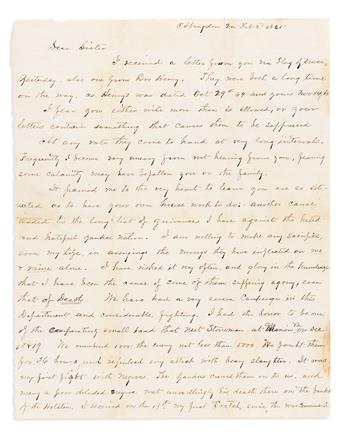 Abingdon Va Feb 5th 1865
Dear Sister
I received a letter from you via Flag of Truce
yesterday also one from Bro Henry. They were both a long time
on the way, as Henry's was dated Oct 29th 64 and yours Nov 14th
I fear you either write more than is allowed, or your
letters contain something that causes them to be suppressed
At any rate they come to hand at very long intervals.
Frequently I become very uneasy from not hearing from you, fearing
some calamity may have befallen you or the family.
It pained me to the very heart to learn you are so
as to have your own house work to do; another cause
added to the long list of grievances I have against the hated
and hateful yankee nation. I am willing to make any sacrifice,
even my life, in avenging the wrongs they have inflicted on me
& mine alone. I have risked it very often, and glory in the knowledge
that I have been the cause of some of them suffering agony, even
that of Death. We have had a very severe campaign in this
Department and considerable fighting. I had the honor to be one
of the comparatively small band that met Stoneman at Marion Va on Dec
18th & 19. We numbered 1000. the enemy not less than 5000. We fought them
for 36 hours, and repulsed any attack with heavy slaughter. It was
my first fight with Negroes. The Yankees crowd them on to us, and
many a poor deluded met unwillingly his death there on the banks
of the Holston. I received on the 19th my first since the war commenced